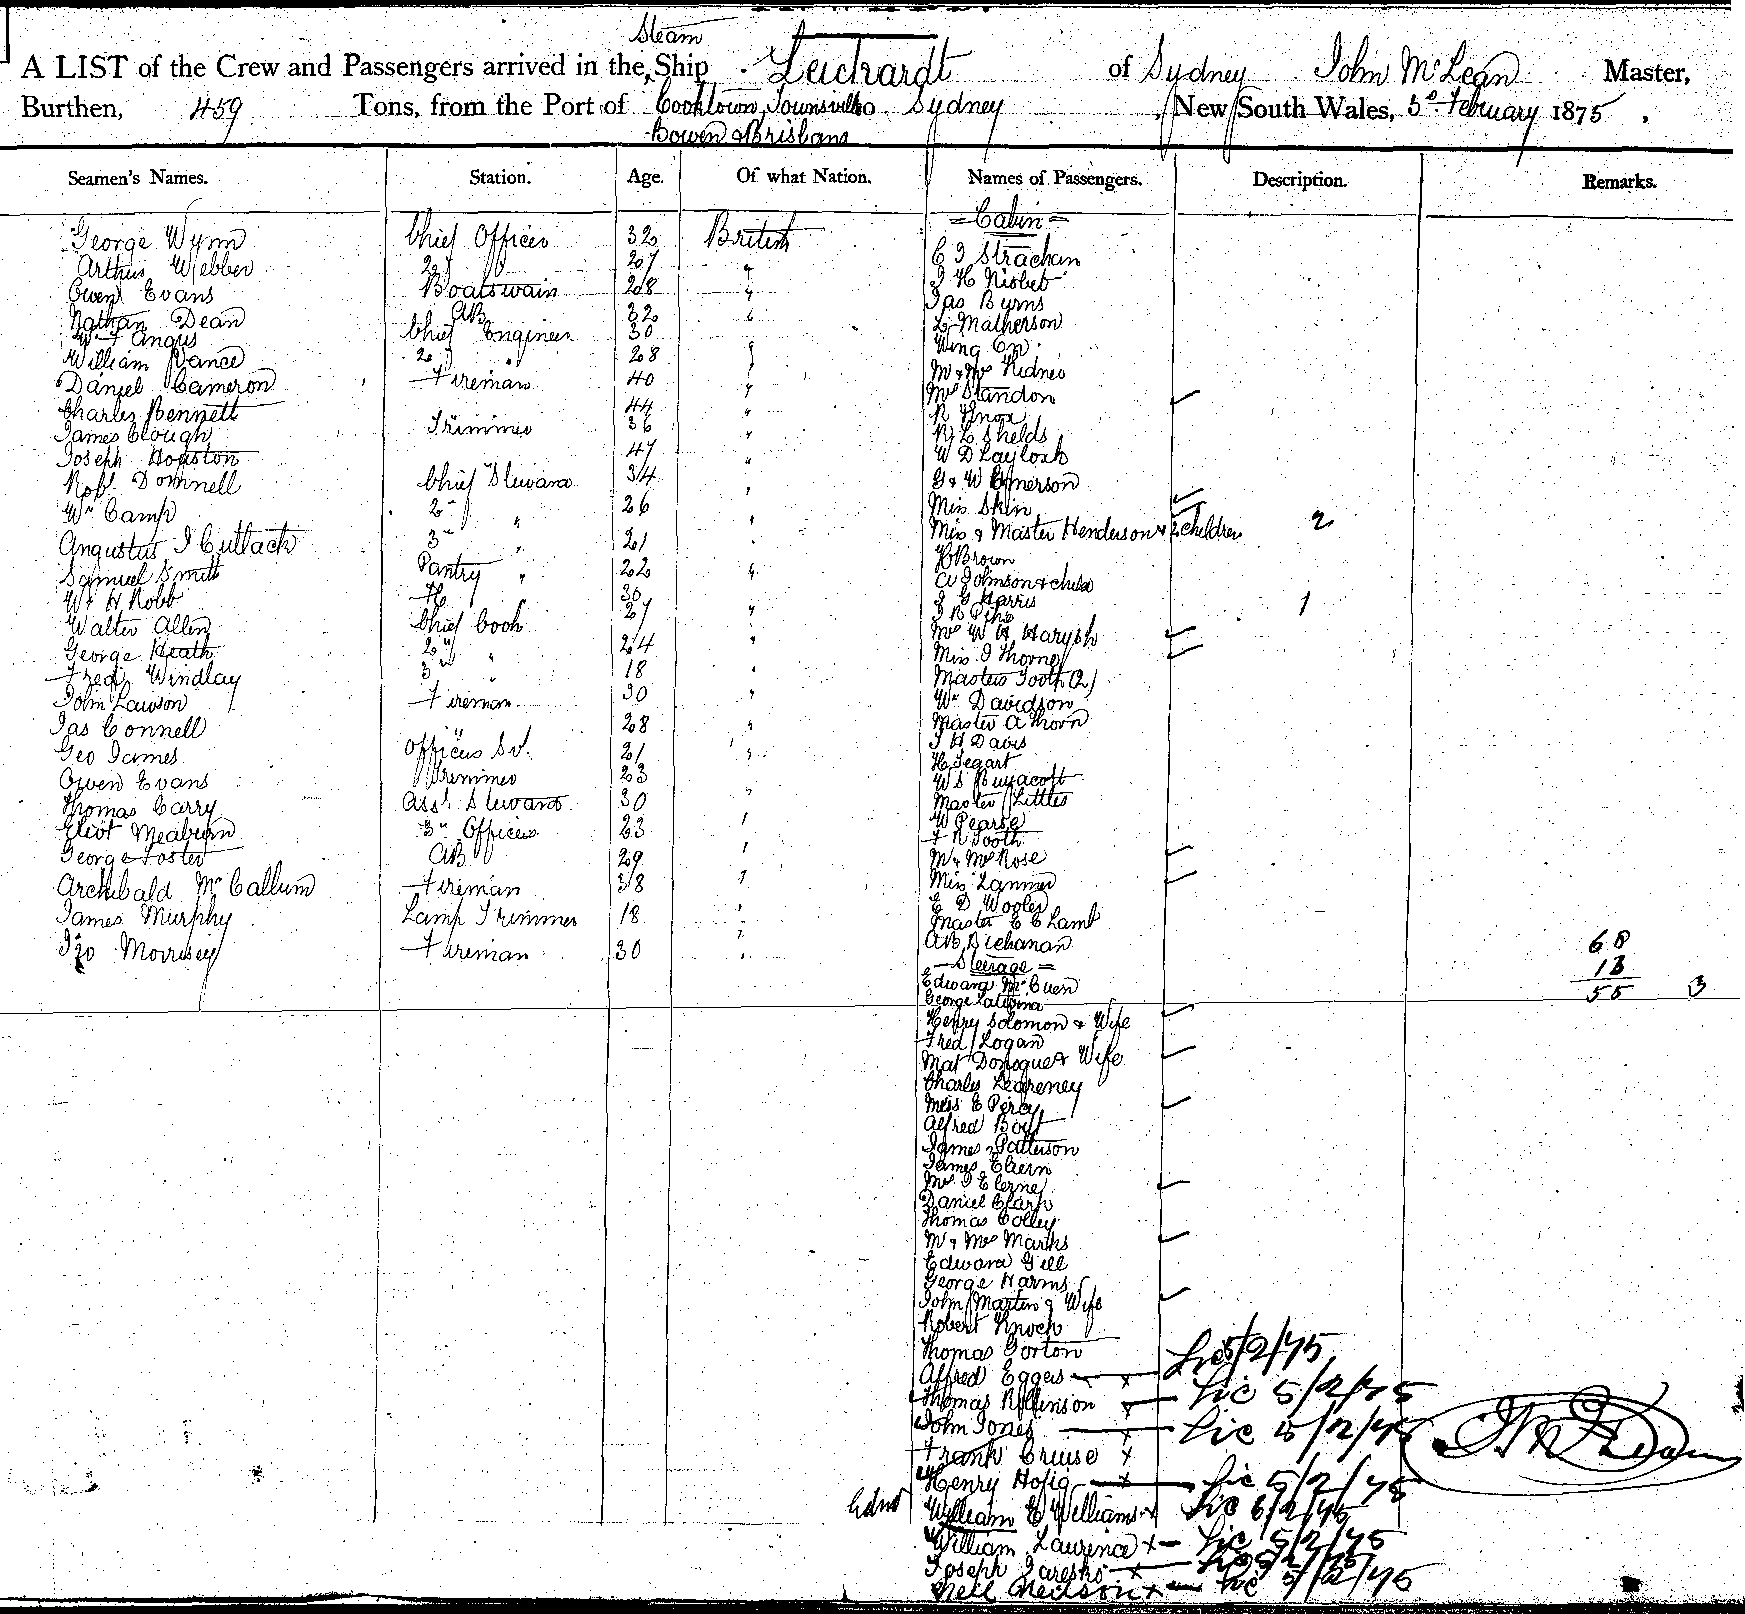 Steam
A LIST of the Crew and Passengers arrived in the Ship Leichardt of Sydney John McLean Master,
Burthen, 459 Tons, from the Port of Cooktown, Townsville to Sydney New South Wales, 3d February 1875
Bowen & Brisbane
Seamen's Names. Station. Age. Of what Nation. Names of Passengers. Description. Remarks.
George Wynn Chief Officer 32 British
Arthur Webber 2d " 27 "
Owen Evans Boatswain 28 "
Nathan Dean AB 32 "
Wm F Angus Chief Engineer 30
William Vance 2d " 28 "
Daniel Cameron Fireman 40 "
Charles Bennett 44 "
James Clough Trimmer 36 "
Joseph Houston 47 "
Robt Donnell Chief Steward 34 "
Wm Camp 2nd " 26 "
Angustus J Cutlack 3rd " 21 "
Samuel Smith Pantry " 22 "
Wm H Robb 30
Walter Allen Chief Cook 27 "
George Heath 2nd " 24 "
Fred Windlay 3rd " 18 "
John Lawson Fireman 30 "
Jas Connell 28 "
Geo James Officers Sv. 21 "
Owen Evans Trimmer 23
Thomas Carry Asst Steward 30 "
Eliot Meaburn 3rd Officer 23 "
George Foster AB 29 "
Archibald McCallum Fireman 38 "
James Murphy Lamp Trimmer 18 "
Morrisey Fireman 30 "
= Cabin =
C J Strachan
J H Nisbet
Jas Burns
L Matherson
Wing On
Mr & Mrs Kidner
Mrs Standon
R Knox
R L Shelds
W D Laylosh
G & W Emerson
Miss Skin
Miss & Master Henderson & 2 children 2
H Brown
A Johnson & child
J G Harris 1
J B Pike
Mrs W H Haryph
Miss J Thorne
Masters Tooth (2)
Wm Davidson
Master A Thorn
J H Davis
H Tegart
W S Buyacott
Master Littles
W Pearse
F R Tooth
Mr & Mrs Rose
Miss Lanner
E D Wooler
Master E C Lamb
AB Buchanan
= Steerage =
68
13
55 3
Edward McCuen
George
Henry Solomon & Wife
Fred Logan
Mat Donogue & Wife
Charles
Miss E Percy
Alfred
James Patterson
James Ehern
Mrs J Eherne
Daniel Clark
Thomas Colley
Mr & Mrs Marks
Edward Gill
George Harms
John Martin & Wife
Robert Knock
Thomas Gorton
Alfred Eggers x Lic 5/2/75
Thomas Robinson x Lic 5/2/75
John Jones x Lic 5/2/75
Frank Cruise x
Henry Hofig x Lic 5/2/75
William E Williams x Lic 6/2/75
William Laurence x Lic 5/2/75
Joseph x Lic 5/2/75
Neil Neilson x Lic 5/2/75